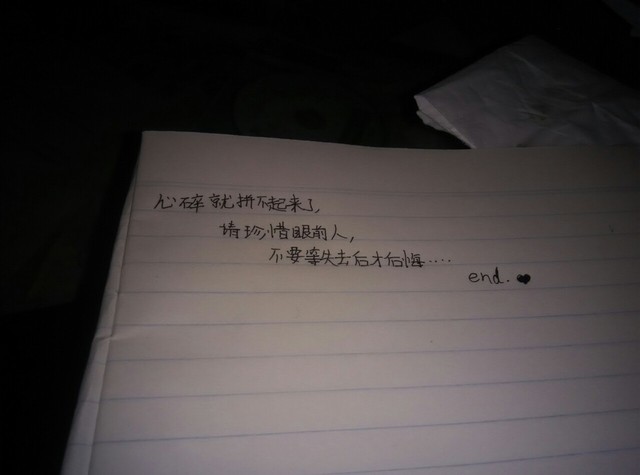 心碎就拼不起来了,
请珍惜眼前人,
不要等失去后才后悔....
end.♥